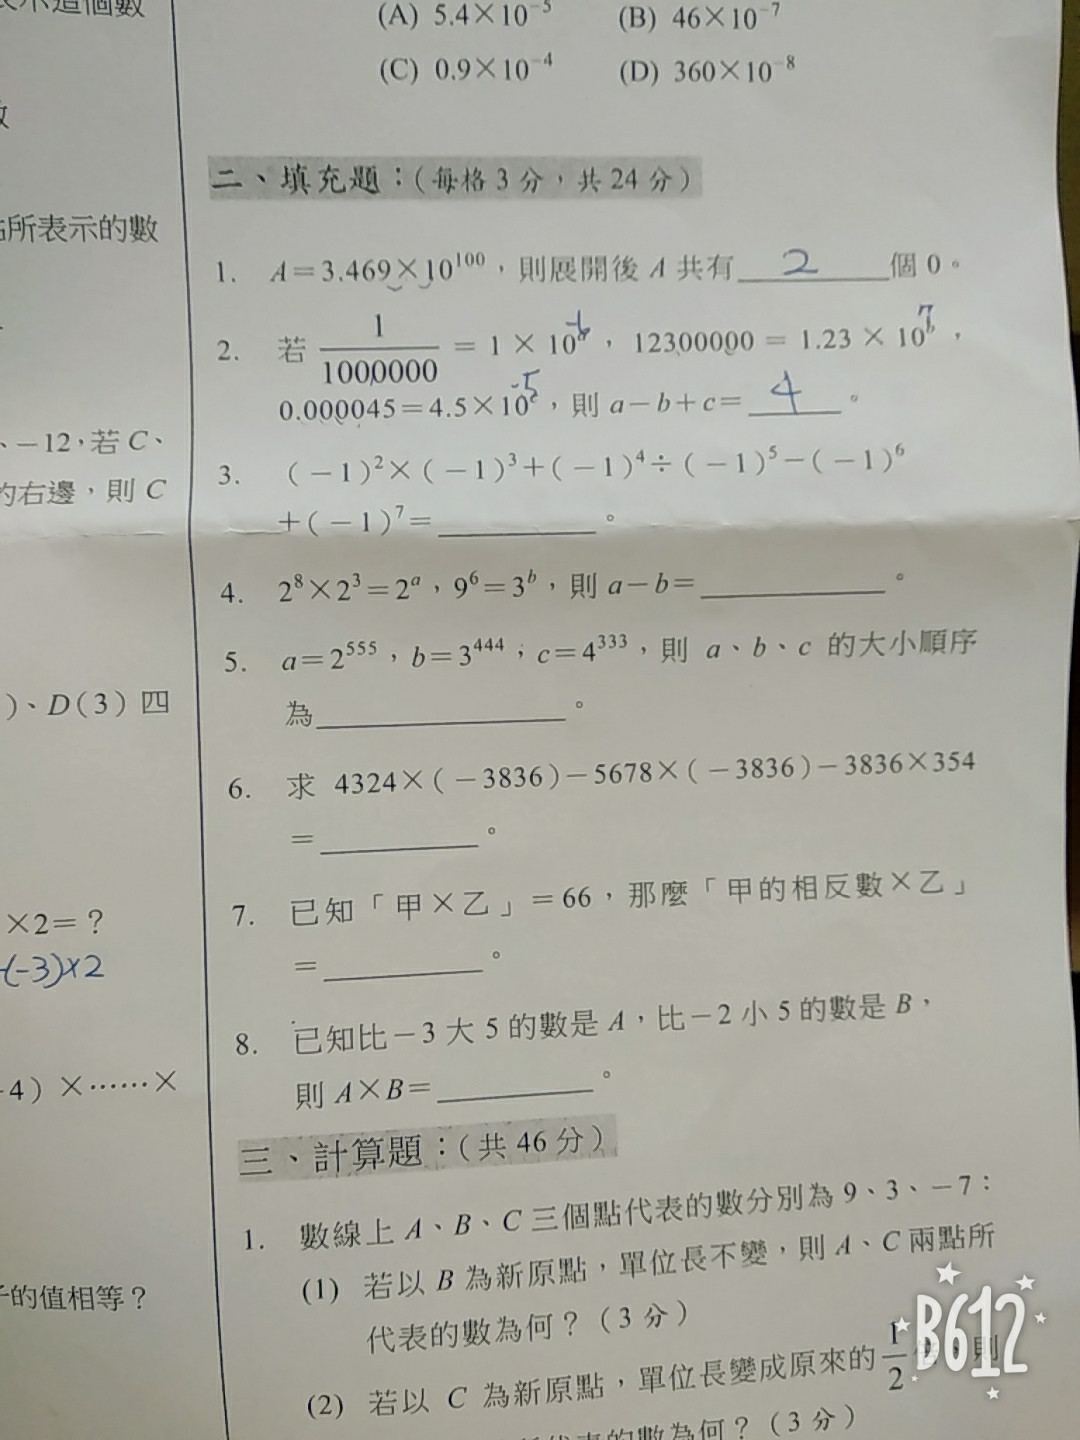 示這個數
(A) 5.4×10⁻⁵ (B) 46×10⁻⁷
(C) 0.9×10⁻⁴ (D) 360×10⁻⁸
所表示的數
、-12,若 C、
的右邊,則 C
)、D(3) 四
×2=?
(-3)×2
4) ×……×
的值相等?
二、填充題:(每格 3 分,共 24 分)
1. A=3.469×10¹⁰⁰,則展開後 A 共有 2 個 0。
2. 若 1/1000000 = 1 × 10ᵃ -6,12300000 = 1.23 × 10ᵇ 7,
0.000045=4.5×10ᶜ -5,則 a-b+c= 4 。
3. (-1)²×(-1)³+(-1)⁴÷(-1)⁵-(-1)⁶
+(-1)⁷=______。
4. 2⁸×2³=2ᵃ,9⁶=3ᵇ,則 a-b=______。
5. a=2⁵⁵⁵,b=3⁴⁴⁴,c=4³³³,則 a、b、c 的大小順序
為______。
6. 求 4324×(-3836)-5678×(-3836)-3836×354
=______。
7. 已知「甲×乙」=66,那麼「甲的相反數×乙」
=______。
8. 已知比-3 大 5 的數是 A,比-2 小 5 的數是 B,
則 A×B=______。
三、計算題:(共 46 分)
1. 數線上 A、B、C 三個點代表的數分別為 9、3、-7:
(1) 若以 B 為新原點,單位長不變,則 A、C 兩點所
代表的數為何?(3 分)
(2) 若以 C 為新原點,單位長變成原來的 1/2 則
代表的數為何?(3 分)
B612